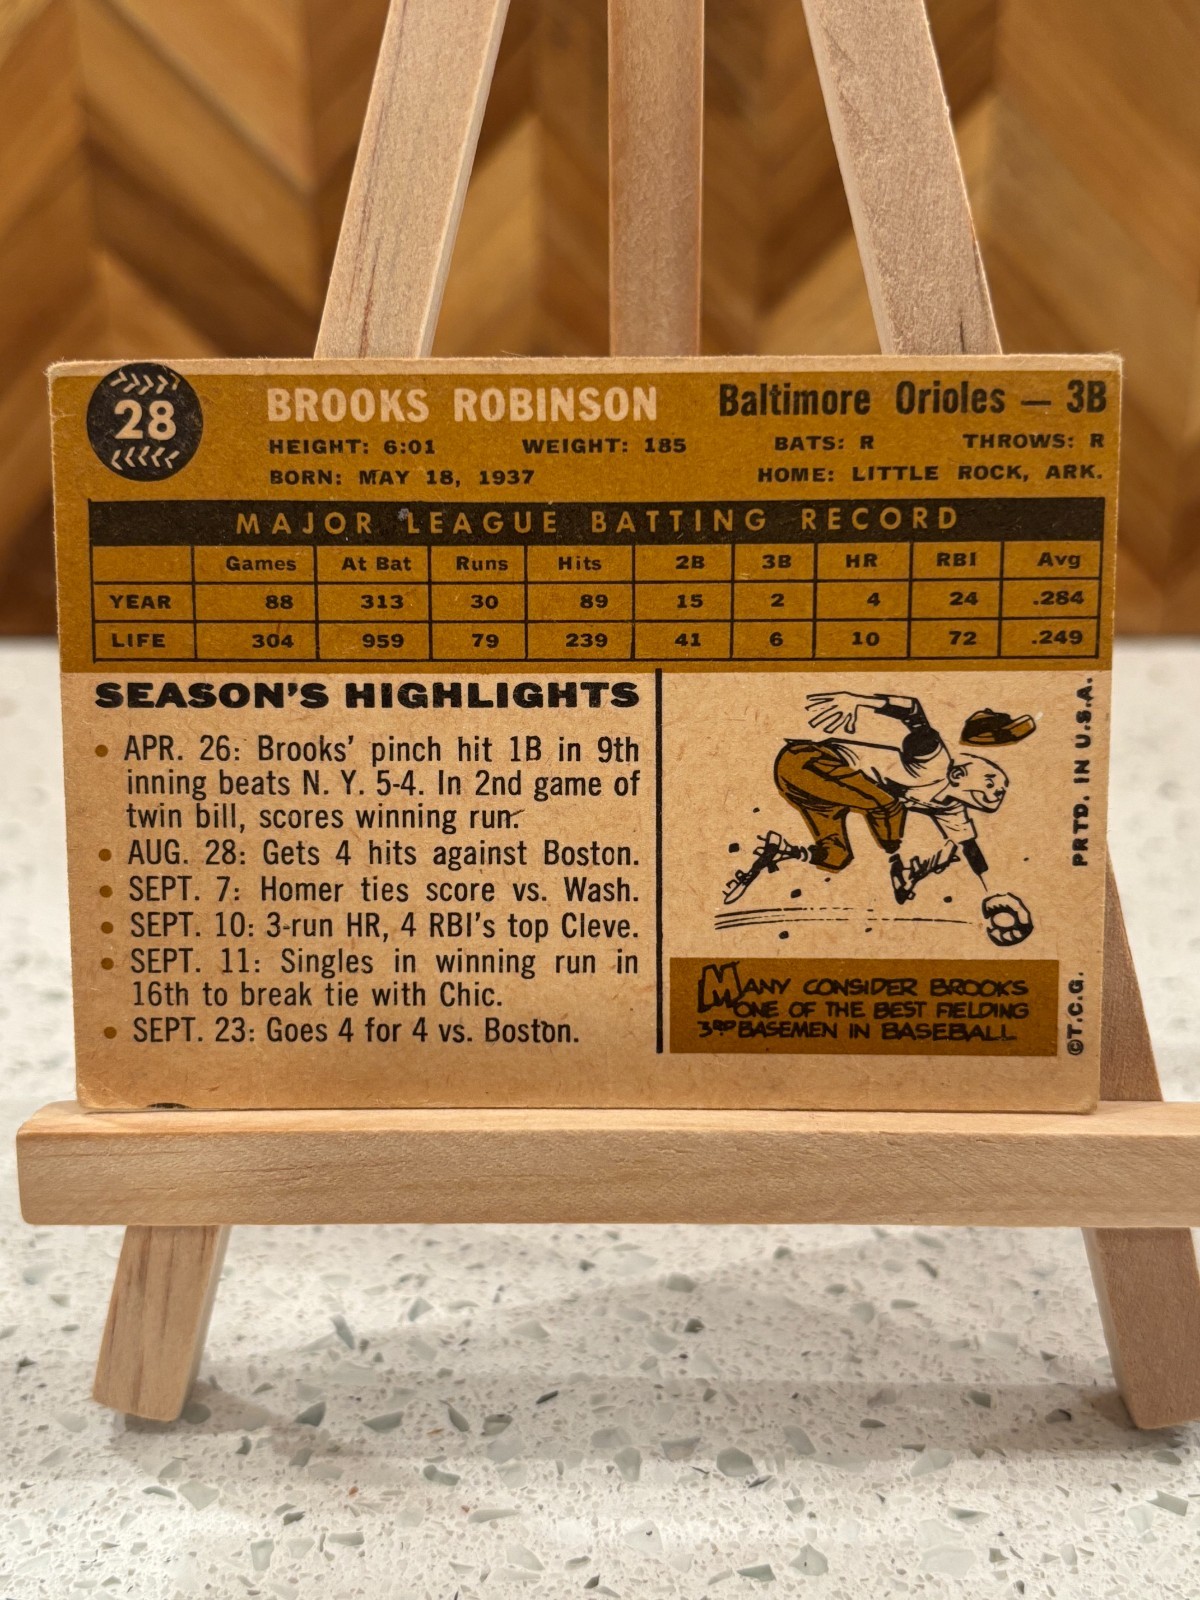 28 BROOKS ROBINSON Baltimore Orioles — 3B
HEIGHT: 6:01 WEIGHT: 185 BATS: R THROWS: R
BORN: MAY 18, 1937 HOME: LITTLE ROCK, ARK.
MAJOR LEAGUE BATTING RECORD
Games At Bat Runs Hits 2B 3B HR RBI Avg
YEAR 88 313 30 89 15 2 4 24 .284
LIFE 304 959 79 239 41 6 10 72 .249
SEASON'S HIGHLIGHTS
• APR. 26: Brooks' pinch hit 1B in 9th
inning beats N. Y. 5-4. In 2nd game of
twin bill, scores winning run.
• AUG. 28: Gets 4 hits against Boston.
• SEPT. 7: Homer ties score vs. Wash.
• SEPT. 10: 3-run HR, 4 RBI's top Cleve.
• SEPT. 11: Singles in winning run in
16th to break tie with Chic.
• SEPT. 23: Goes 4 for 4 vs. Boston.
MANY CONSIDER BROOKS
ONE OF THE BEST FIELDING
3RD BASEMEN IN BASEBALL
©T.C.G. PRTD. IN U.S.A.